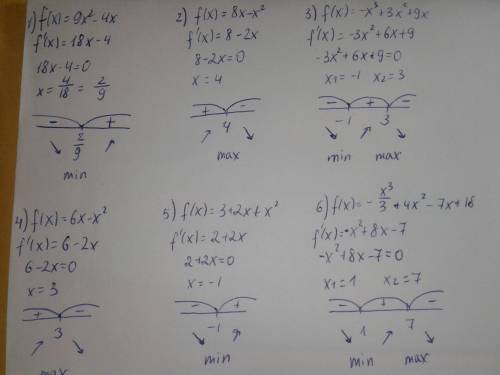 1) f(x) = 9x² - 4x
f'(x) = 18x - 4
18x - 4 = 0
x = 4/18 = 2/9
- +
2/9
↘ ↗
min
2) f(x) = 8x - x²
f'(x) = 8 - 2x
8 - 2x = 0
x = 4
+ -
4
↗ ↘
max
3) f(x) = -x³ + 3x² + 9x
f'(x) = -3x² + 6x + 9
-3x² + 6x + 9 = 0
x₁ = -1 x₂ = 3
- + -
-1 3
↘ ↗ ↘
min max
4) f(x) = 6x - x²
f'(x) = 6 - 2x
6 - 2x = 0
x = 3
+ -
3
↗ ↘
max
5) f(x) = 3 + 2x + x²
f'(x) = 2 + 2x
2 + 2x = 0
x = -1
- +
-1
↘ ↗
min
6) f(x) = -x³/3 + 4x² - 7x + 18
f'(x) = -x² + 8x - 7
-x² + 8x - 7 = 0
x₁ = 1 x₂ = 7
- + -
1 7
↘ ↗ ↘
min max